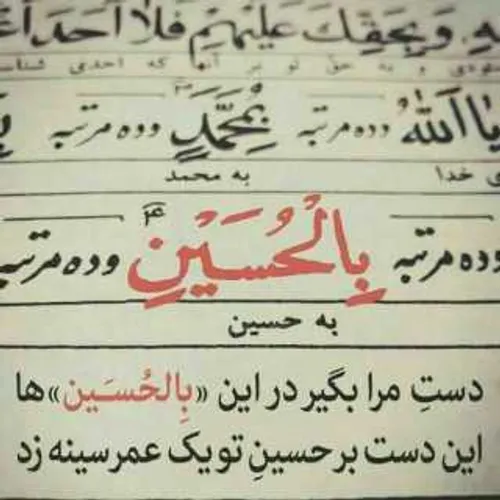 وَبِحَقِّكَ عَلَيْهِمْ فَلاٰ اَحَدَ
و به حق تو بر آنها که احدی
یٰا اَللّٰهُ وده مرتبه بِمُحَمَّدٍ وده مرتبه
خدا به محمد
وده مرتبه بِالْحُسَيْنِ وده مرتبه
به حسین
دستِ مرا بگیر در این «بِالحُسَین»ها
این دست بر حسینِ تو یک عمر سینه زد